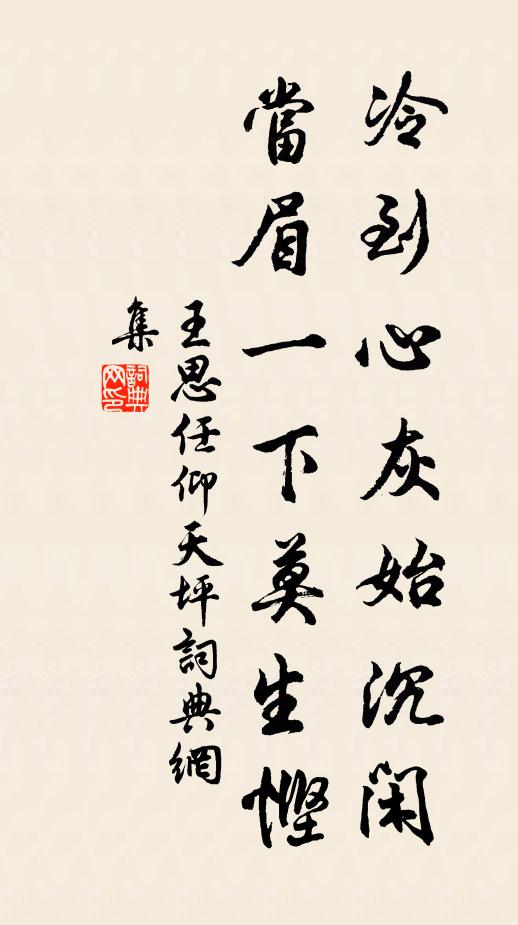 冷到心灰始沉闲
當眉一下莫生慳
王思任仰天坪詞典網
集
詞典
网印